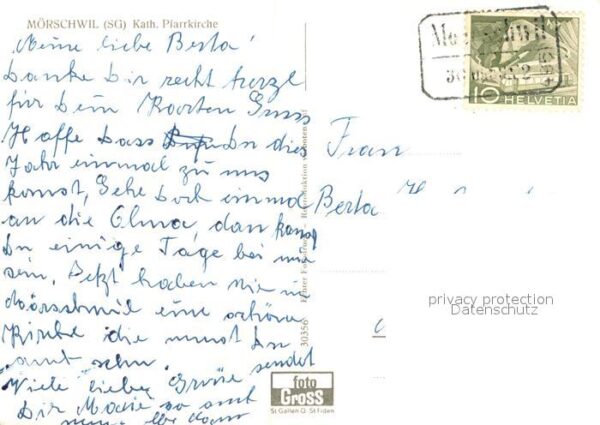 MÖRSCHWIL (SG) Kath. Pfarrkirche
Meine liebe Berta!
Danke Dir recht herzl
für Dein Kaarten Gruss
Hoffe dass Du dies
Jahr einmal zu uns
komst, Gehe doch einmal
an die Olma, dan kanst
Du einige Tage bei mir
sein, Jetzt haben wir in
Mörschwil eine schöne
Kirche die must Du
amt sehn.
Viele liebe Grüse sendet
Dir Marie
Frau
Berta
HELVETIA
10
30356
foto
Gross
St Gallen O St Fiden
privacy protection
Datenschutz